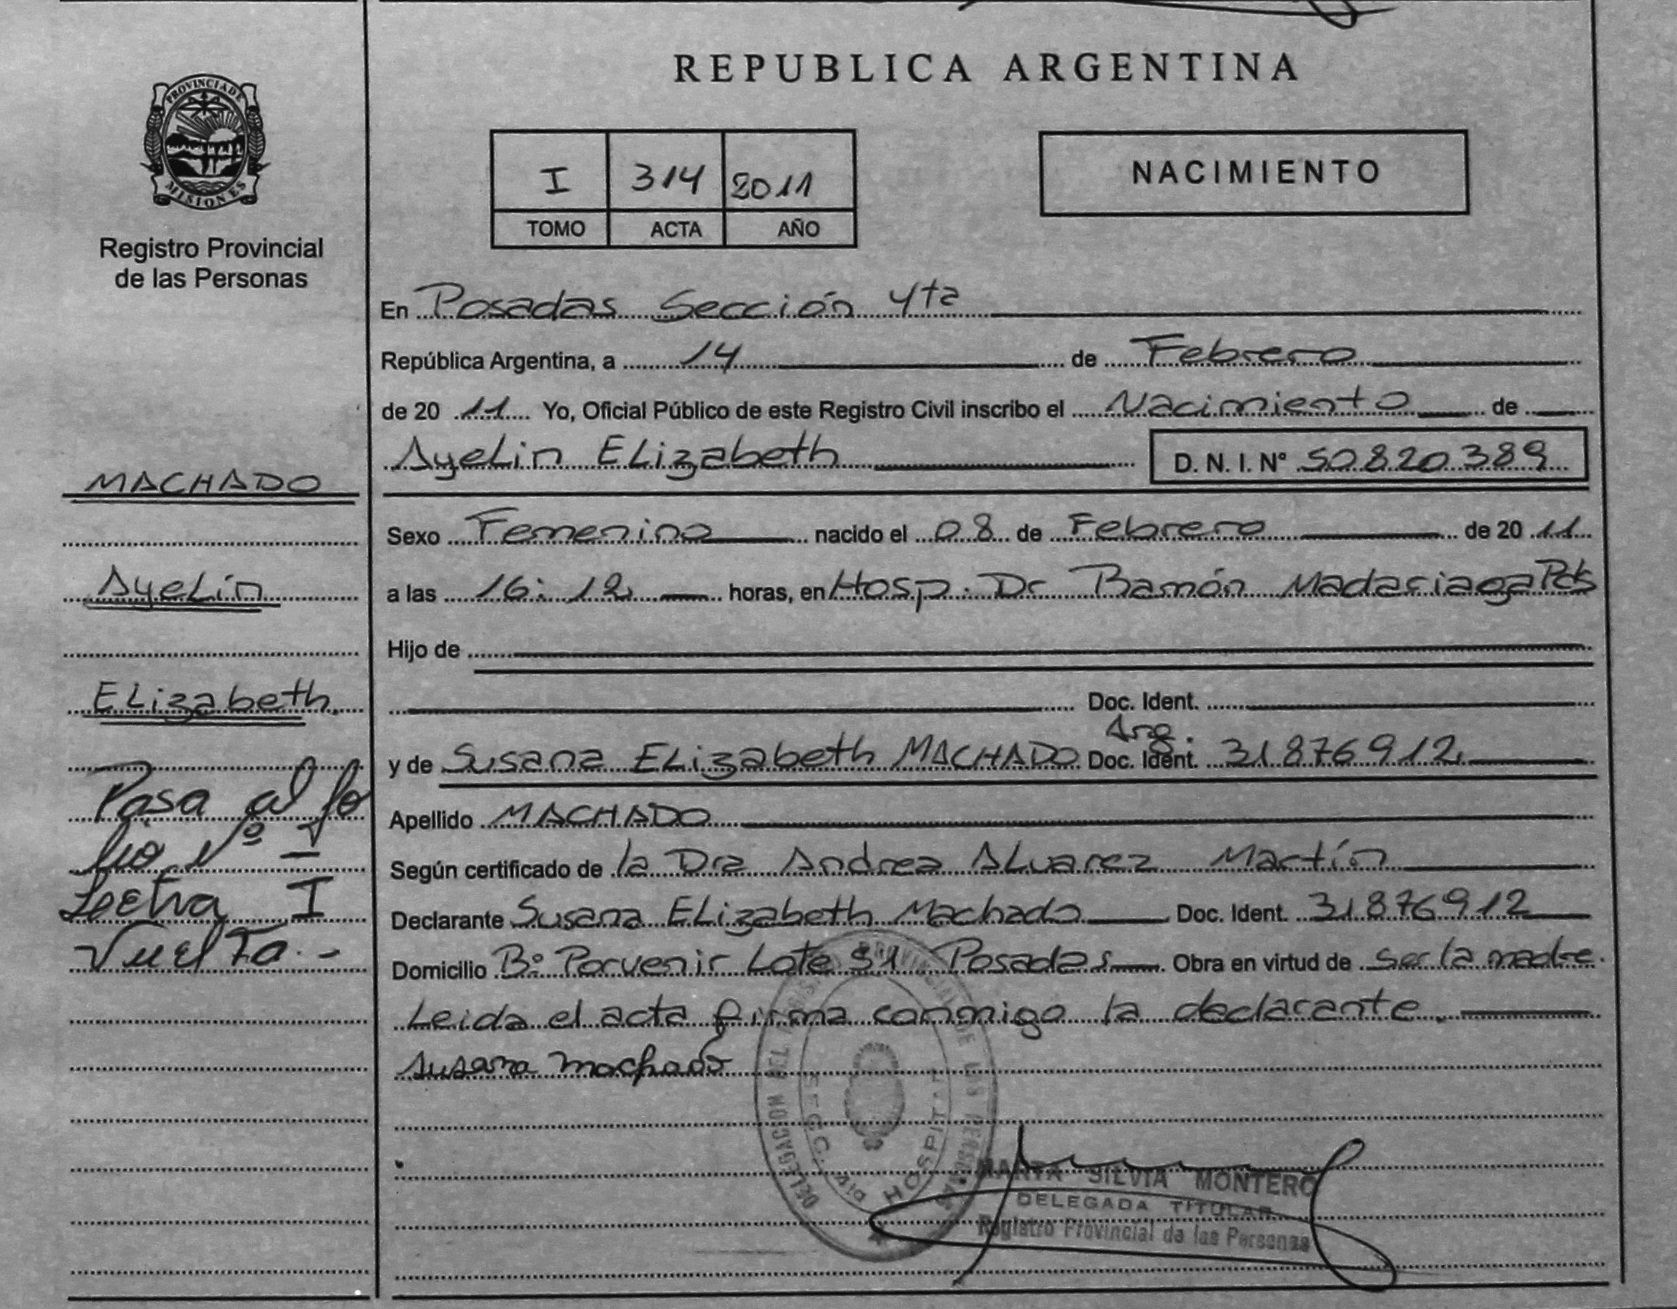 PROVINCIA DE
MISIONES
Registro Provincial
de las Personas
MACHADO
Ayelín
Elizabeth.
Pasa al fo
lio Nº I
Letra I
Vuelta.-
REPUBLICA ARGENTINA
I 314 2011
TOMO ACTA AÑO
NACIMIENTO
En Posadas Sección 4ta
República Argentina, a 14 de Febrero
de 20 11 Yo, Oficial Público de este Registro Civil inscribo el Nacimiento de
Ayelín Elizabeth D. N. I. Nº 50.820.389
Sexo Femenino nacido el 08 de Febrero de 20 11
a las 16:12 horas, en Hosp. Dr Ramón Madariaga Pds
Hijo de
Doc. Ident.
Arg.
y de Susana Elizabeth MACHADO Doc. Ident. 31876912
Apellido MACHADO
Según certificado de la Dra Andrea Alvarez Martín
Declarante Susana Elizabeth Machado Doc. Ident. 31876912
Domicilio Bº Porvenir Lote 31 Posadas Obra en virtud de ser la madre.
Leida el acta firma conmigo la declarante.
Susana Machado
DELEGACION DEL REGISTRO PROVINCIAL DE LAS PERSONAS
SECC. DIV. HOSPITAL
MARTA SILVIA MONTERO
DELEGADA TITULAR
Registro Provincial de las Personas